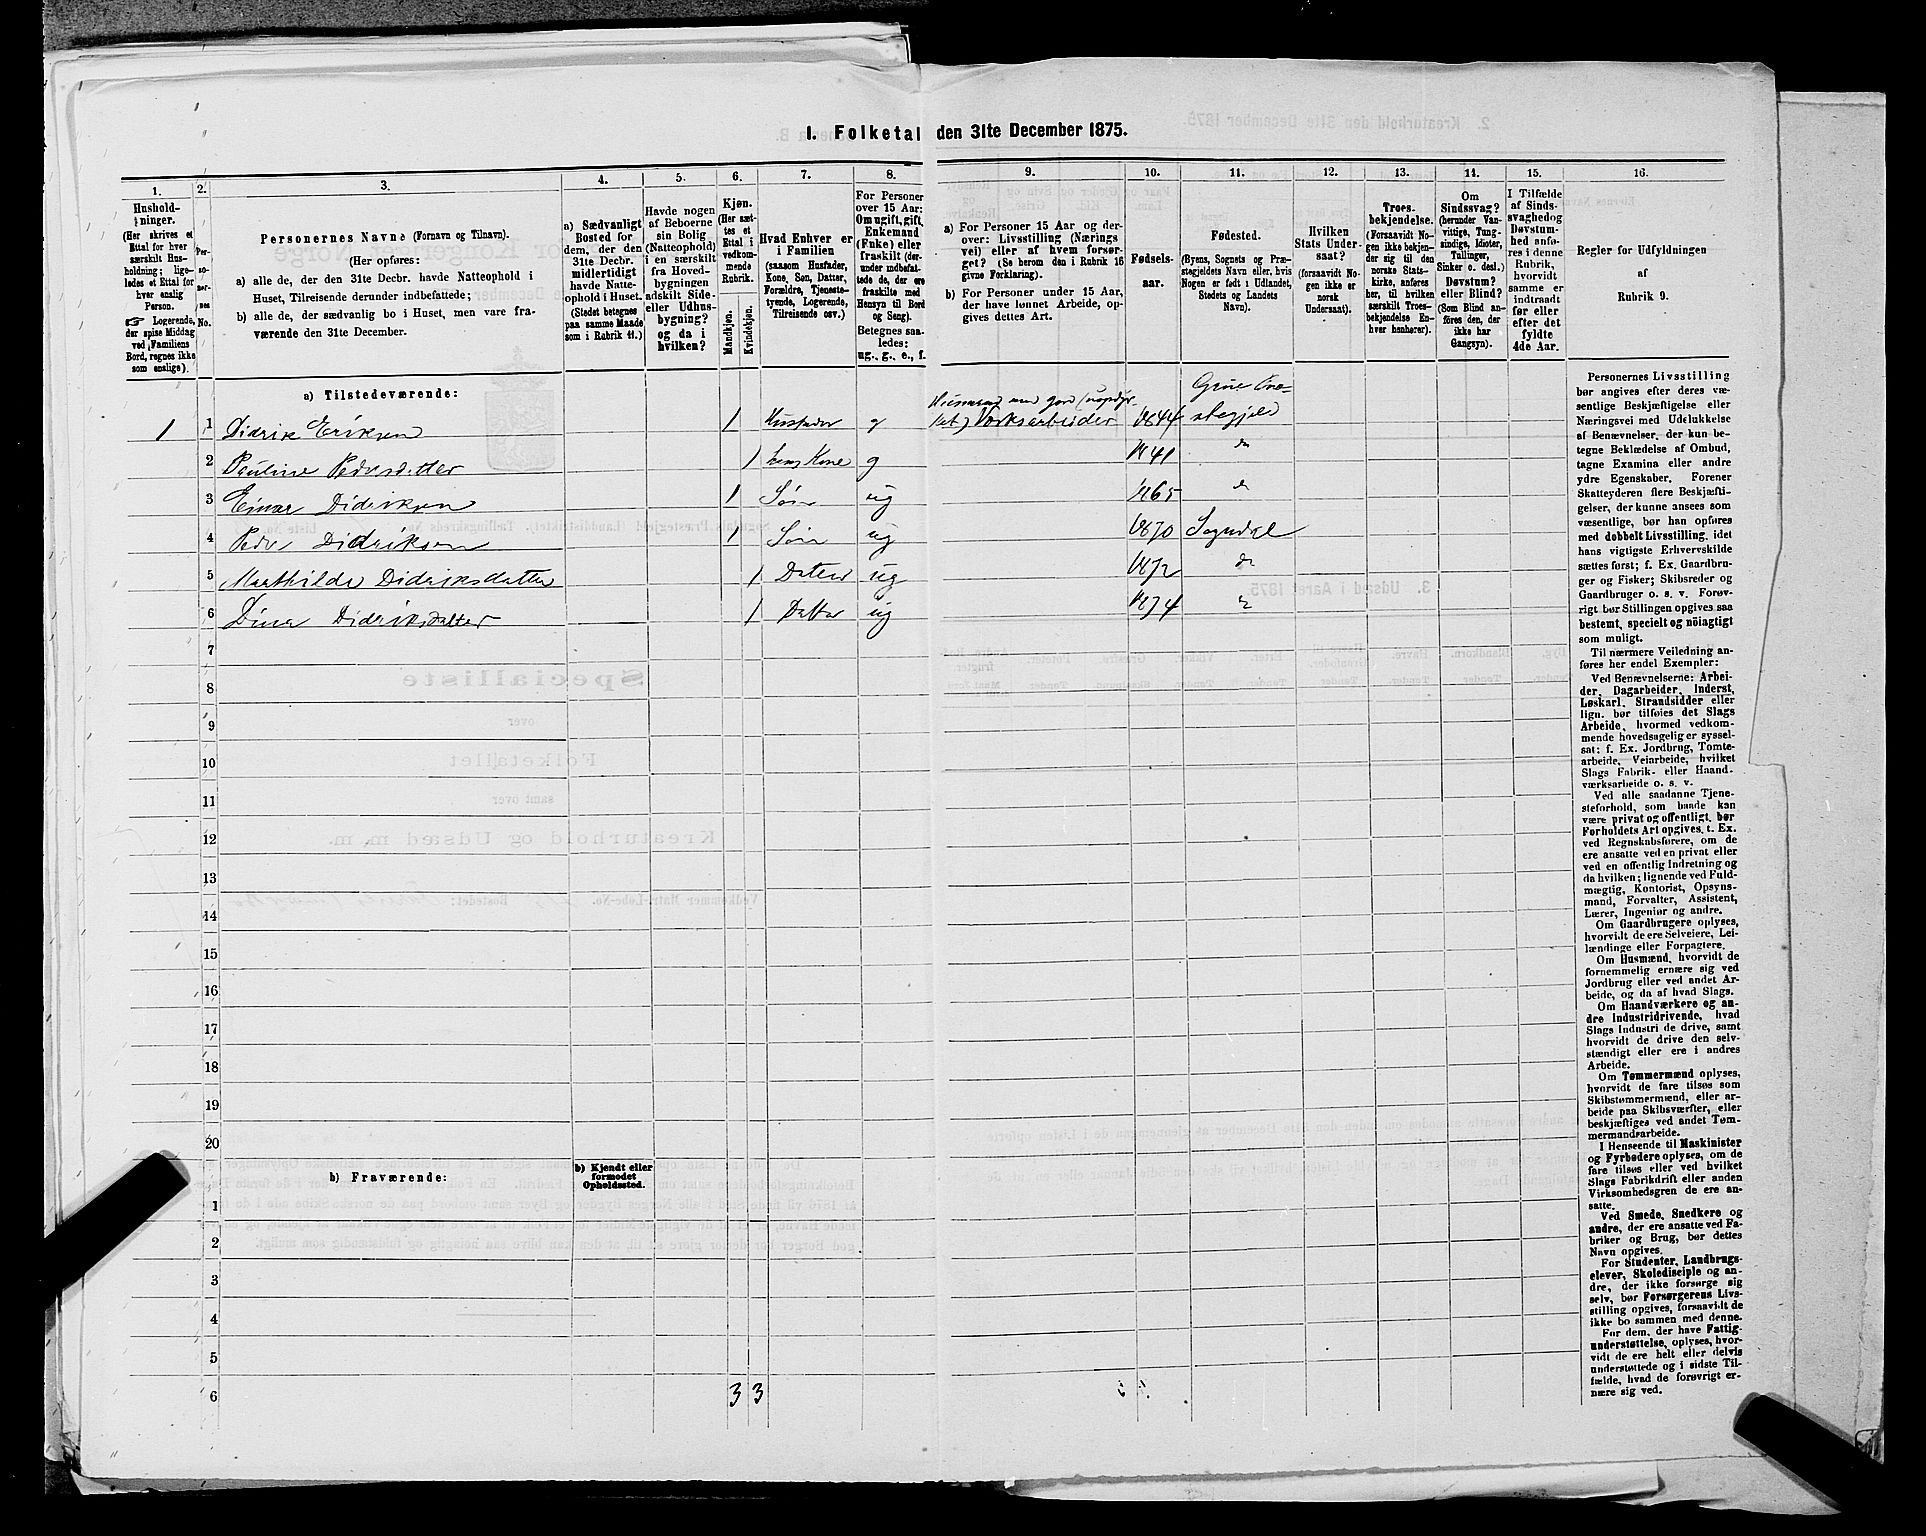 I. Folketal den 31te December 1875.
1.
Hushold-
ninger.
(Her skrives et
Ettal for hver
særskilt Hus-
holdning; lige-
ledes et Ettal for
hver enslig
Person.
☞ Logerende,
der spise Middag
ved Familiens
Bord, regnes ikke
som enslige).
2.
Per-
so-
ner-
nes
No.
3.
Personernes Navne (Fornavn og Tilnavn).
(Her opføres:
a) alle de, der den 31te Decbr. havde Natteophold i
Huset, Tilreisende derunder indbefattede;
b) alle de, der sædvanlig bo i Huset, men vare fra-
værende den 31te December.
4.
a) Sædvanligt
Bosted for
dem, der den
31te Decbr.
midlertidigt
havde Natte-
ophold i Huset.
(Stedet betegnes
paa samme Maade
som i Rubrik 11.)
5.
Havde nogen
af Beboerne
sin Bolig
(Natteophold)
i en særskilt
fra Hoved-
bygningen
adskilt Side-
eller Udhus-
bygning?
og da i
hvilken?
6.
Kjøn.
(Her sæt-
tes et
Ettal i
vedkom-
mende
Rubrik.
Mandkjøn.
Kvindekjøn.
7.
Hvad Enhver er
i Familien
(saasom Husfader,
Kone, Søn, Datter,
Forældre, Tjeneste-
tyende, Logerende,
Tilreisende osv.)
8.
For Personer
over 15 Aar:
Om ugift, gift,
Enkemand
(Enke) eller
fraskilt (der-
under indbefat-
tede de, der ere
fraskilte med
Hensyn til Bord
og Seng).
Betegnes saa-
ledes:
ug., g., e., f.
9.
a) For Personer 15 Aar og der-
over: Livsstilling (Nærings
vei) eller af hvem forsør-
get? (Se herom den i Rubrik 16
givne Forklaring).
b) For Personer under 15 Aar,
der have lønnet Arbeide, op-
gives dettes Art.
10.
Fødsels-
aar.
11.
Fødested.
(Byens, Sognets og Præ-
stegjeldets Navn eller, hvis
Nogen er født i Udlandet,
Stedets og Landets
Navn).
12.
Hvilken
Stats Under-
saat?
(forsaavidt No-
gen ikke er
norsk
Undersaat).
13.
Troes-
bekjendelse.
(Forsaavidt No-
gen ikke bekjen-
der sig til den
norske Stats-
kirke, anføres
her, til hvilken
særskilt Troes-
bekjendelse En-
hver henhører).
14.
Om
Sindssvag?
(herunder Van-
vittige, Tung-
sindige, Idioter,
Tullinger,
Sinker o. desl.)
Døvstum?
eller Blind?
(Som Blind an-
føres den, der
ikke har
Gangsyn).
15.
I Tilfælde
af Sinds-
svaghed og
Døvstum-
hed anfø-
res i denne
Rubrik,
hvorvidt
samme er
indtraadt
før eller
efter det
fyldte
4de Aar.
16.
Regler for Udfyldningen
af
Rubrik 9.
a) Tilstedeværende:
1 1 Didrik Eriksen 1 Husfader g Husmand med jord
Verksarbeider 1844 Grue Præ-
stegjeld
2 Pauline Pedersdatter 1 hans Kone g 1841 do
3 Einar Didriksen 1 Søn ug 1865 do
4 Peder Didriksen 1 Søn ug 1870 Sogndal
5 Mathilde Didriksdatter 1 Datter ug 1872 do
6 Dina Didriksdatter 1 Datter ug 1874 do
7
8
9
10
11
12
13
14
15
16
17
18
19
20
b) Fraværende:
b) Kjendt eller
formodet
Opholdssted.
1
2
3
4
5
6
3 3
Personernes Livsstilling
bør angives efter deres væ-
sentlige Beskjæftigelse eller
Næringsvei med Udelukkelse
af Benævnelser, der kun be-
tegne Beklædelse af Ombud,
tagne Examina eller andre
ydre Egenskaber. Forener
Skatteyderen flere Beskjæfti-
gelser, der kunne ansees som
væsentlige, bør han opføres
med dobbelt Livsstilling, idet
hans vigtigste Erhvervskilde
sættes først; f. Ex. Gaardbru-
ger og Fisker; Skibsreder og
Gaardbruger o. s. v. Forøv-
rigt bør Stillingen opgives saa
bestemt, specielt og nøiagtigt
som muligt.
Til nærmere Veiledning an-
føres her endel Exempler:
Ved Benævnelserne: Arbei-
der, Dagarbeider, Inderst,
Løskarl, Strandsidder eller
lign. bør tilføies det Slags
Arbeide, hvormed vedkom-
mende hovedsagelig er syssel-
sat; f. Ex. Jordbrug, Tomte-
arbeide, Veiarbeide, hvilket
Slags Fabrik- eller Haand-
værksarbeide o. s. v.
Ved alle saadanne Tjene-
steforhold, som baade kan
være privat og offentligt, bør
Forholdets Art opgives, t. Ex.
ved Regnskabsførere, om de
ere ansatte ved en privat eller
ved en offentlig Indretning og
da hvilken; lignende ved Fuld-
mægtig, Kontorist, Opsyns-
mand, Forvalter, Assistent,
Lærer, Ingeniør og andre.
Om Gaardbrugere oplyses,
hvorvidt de ere Selveiere, Lei-
lændinge eller Forpagtere.
Om Husmænd, hvorvidt de
fornemmelig ernære sig ved
Jordbrug eller ved andet Ar-
beide, og da af hvad Slags.
Om Haandværkere og an-
dre Industridrivende, hvad
Slags Industri de drive, samt
hvorvidt de drive den selv-
stændigt eller ere i andres
Arbeide.
Om Tømmermænd oplyses,
hvorvidt de fare tilsøs som
Skibstømmermænd, eller ar-
beide paa Skibsværfter, eller
beskjæftiges ved andet Tøm-
mermandsarbeide.
I Henseende til Maskinister
og Fyrbødere oplyses, om de
fare tilsøs eller ved hvilket
Slags Fabrikdrift eller anden
Virksomhedsgren de ere an-
satte.
Ved Smede, Snedkere og
andre, der ere ansatte ved Fa-
briker og Brug, bør dettes
Navn opgives.
For Studenter, Landbrugs-
elever, Skoledisciple og an-
dre, der ikke forsørge sig
selv, bør Forsørgerens Livs-
stilling opgives, forsaavidt de
ikke bo sammen med denne.
For dem, der have Fattig-
understøttelse, oplyses, hvor-
vidt de ere helt eller delvis
understøttede og i sidste Til-
fælde, hvad de forøvrigt er-
nære sig ved.